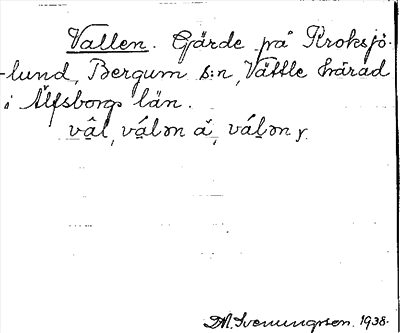 Vallen. Gärde på Kroksjö-
-lund, Bergum s:n, Vättle härad
i Älfsborgs län.
vâl, válən ä, válən y.
D.M. Svenungsson. 1938.